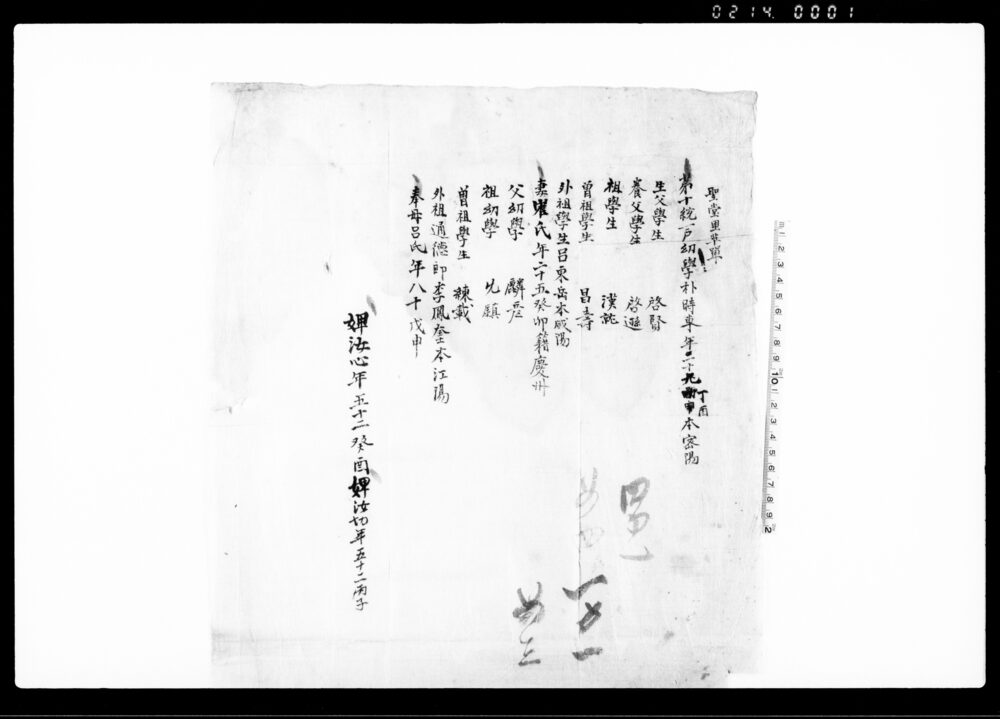 0214. 0001
聖堂里草單
第十統一戶幼學朴時專年二十九丁酉本密陽
生父學生 啓賢
養父學生 啓遜
祖學生 漢
曾祖學生 昌壽
外祖學生呂東岳本咸陽
妻崔氏年二十五癸卯籍慶州
父幼學 麟彦
祖幼學 兌鎮
曾祖學生 練載
外祖通德郎李鳳奎本江陽
奉母呂氏年八十戊申
婢汝心年五十二癸酉婢汝切年五十二丙子